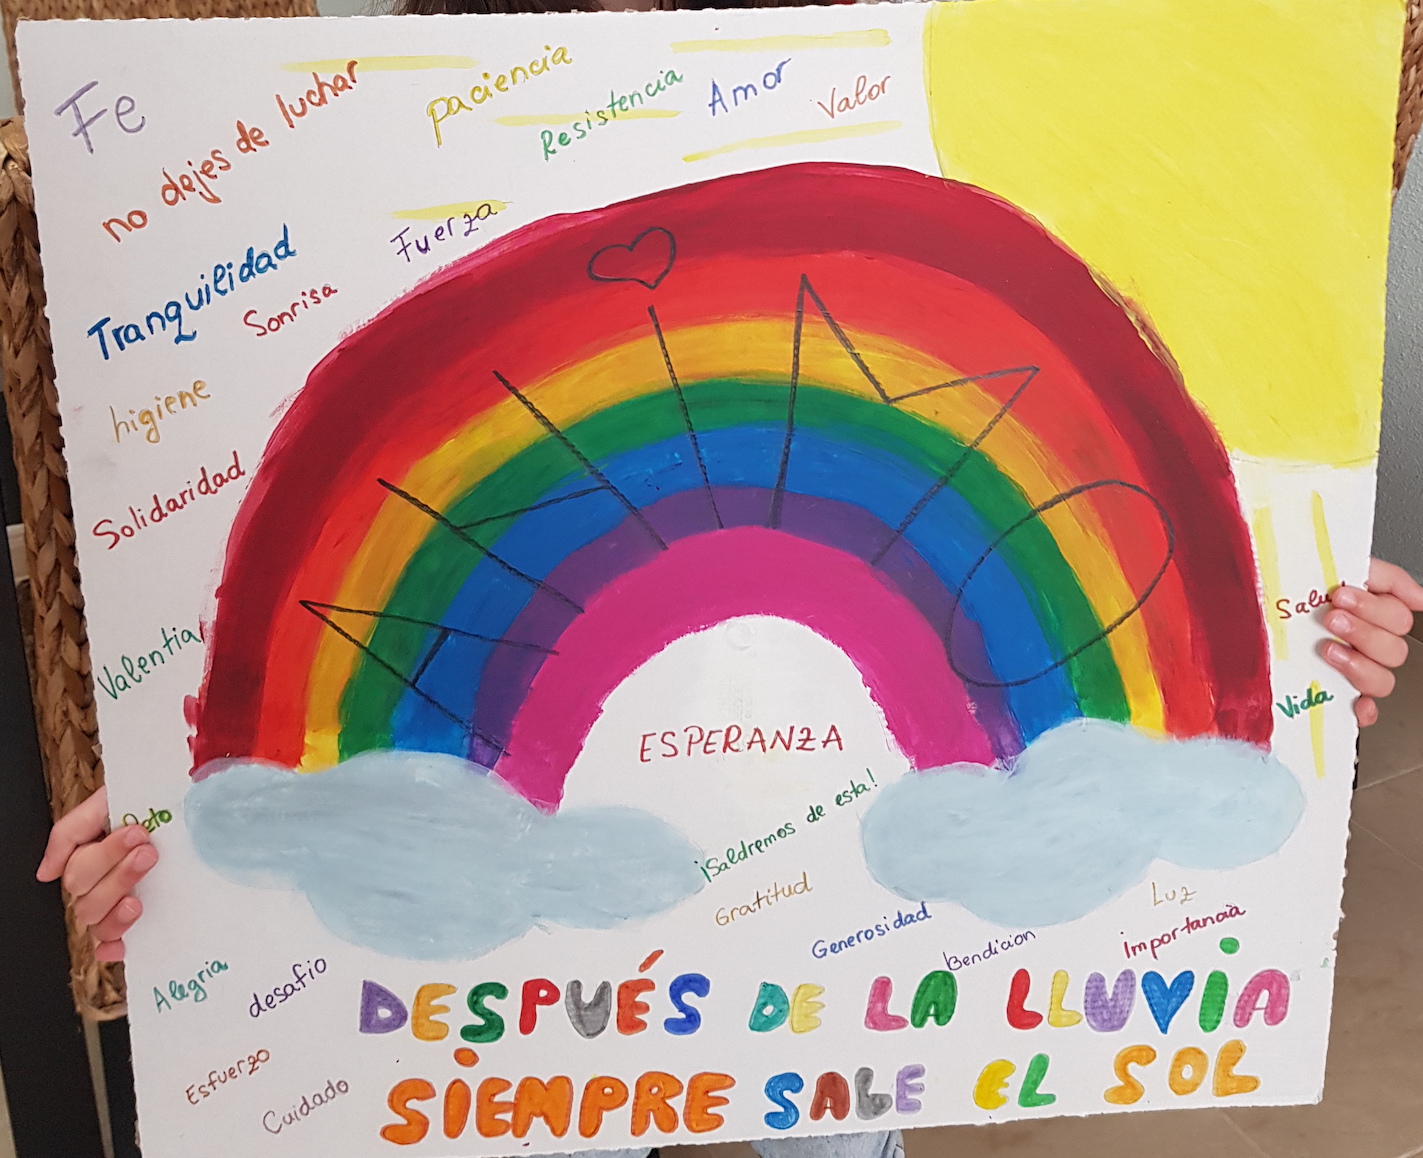 Fe
no dejes de luchar
paciencia
Resistencia
Amor
Valor
Tranquilidad
Sonrisa
Fuerza
higiene
Solidaridad
Valentia
ANIMO
Vida
ESPERANZA
¡Saldremos de esta!
Gratitud
Generosidad
Bendicion
Luz
Importancia
Alegria
desafio
Esfuerzo
Cuidado
DESPUÉS DE LA LLUVIA
SIEMPRE SALE EL SOL